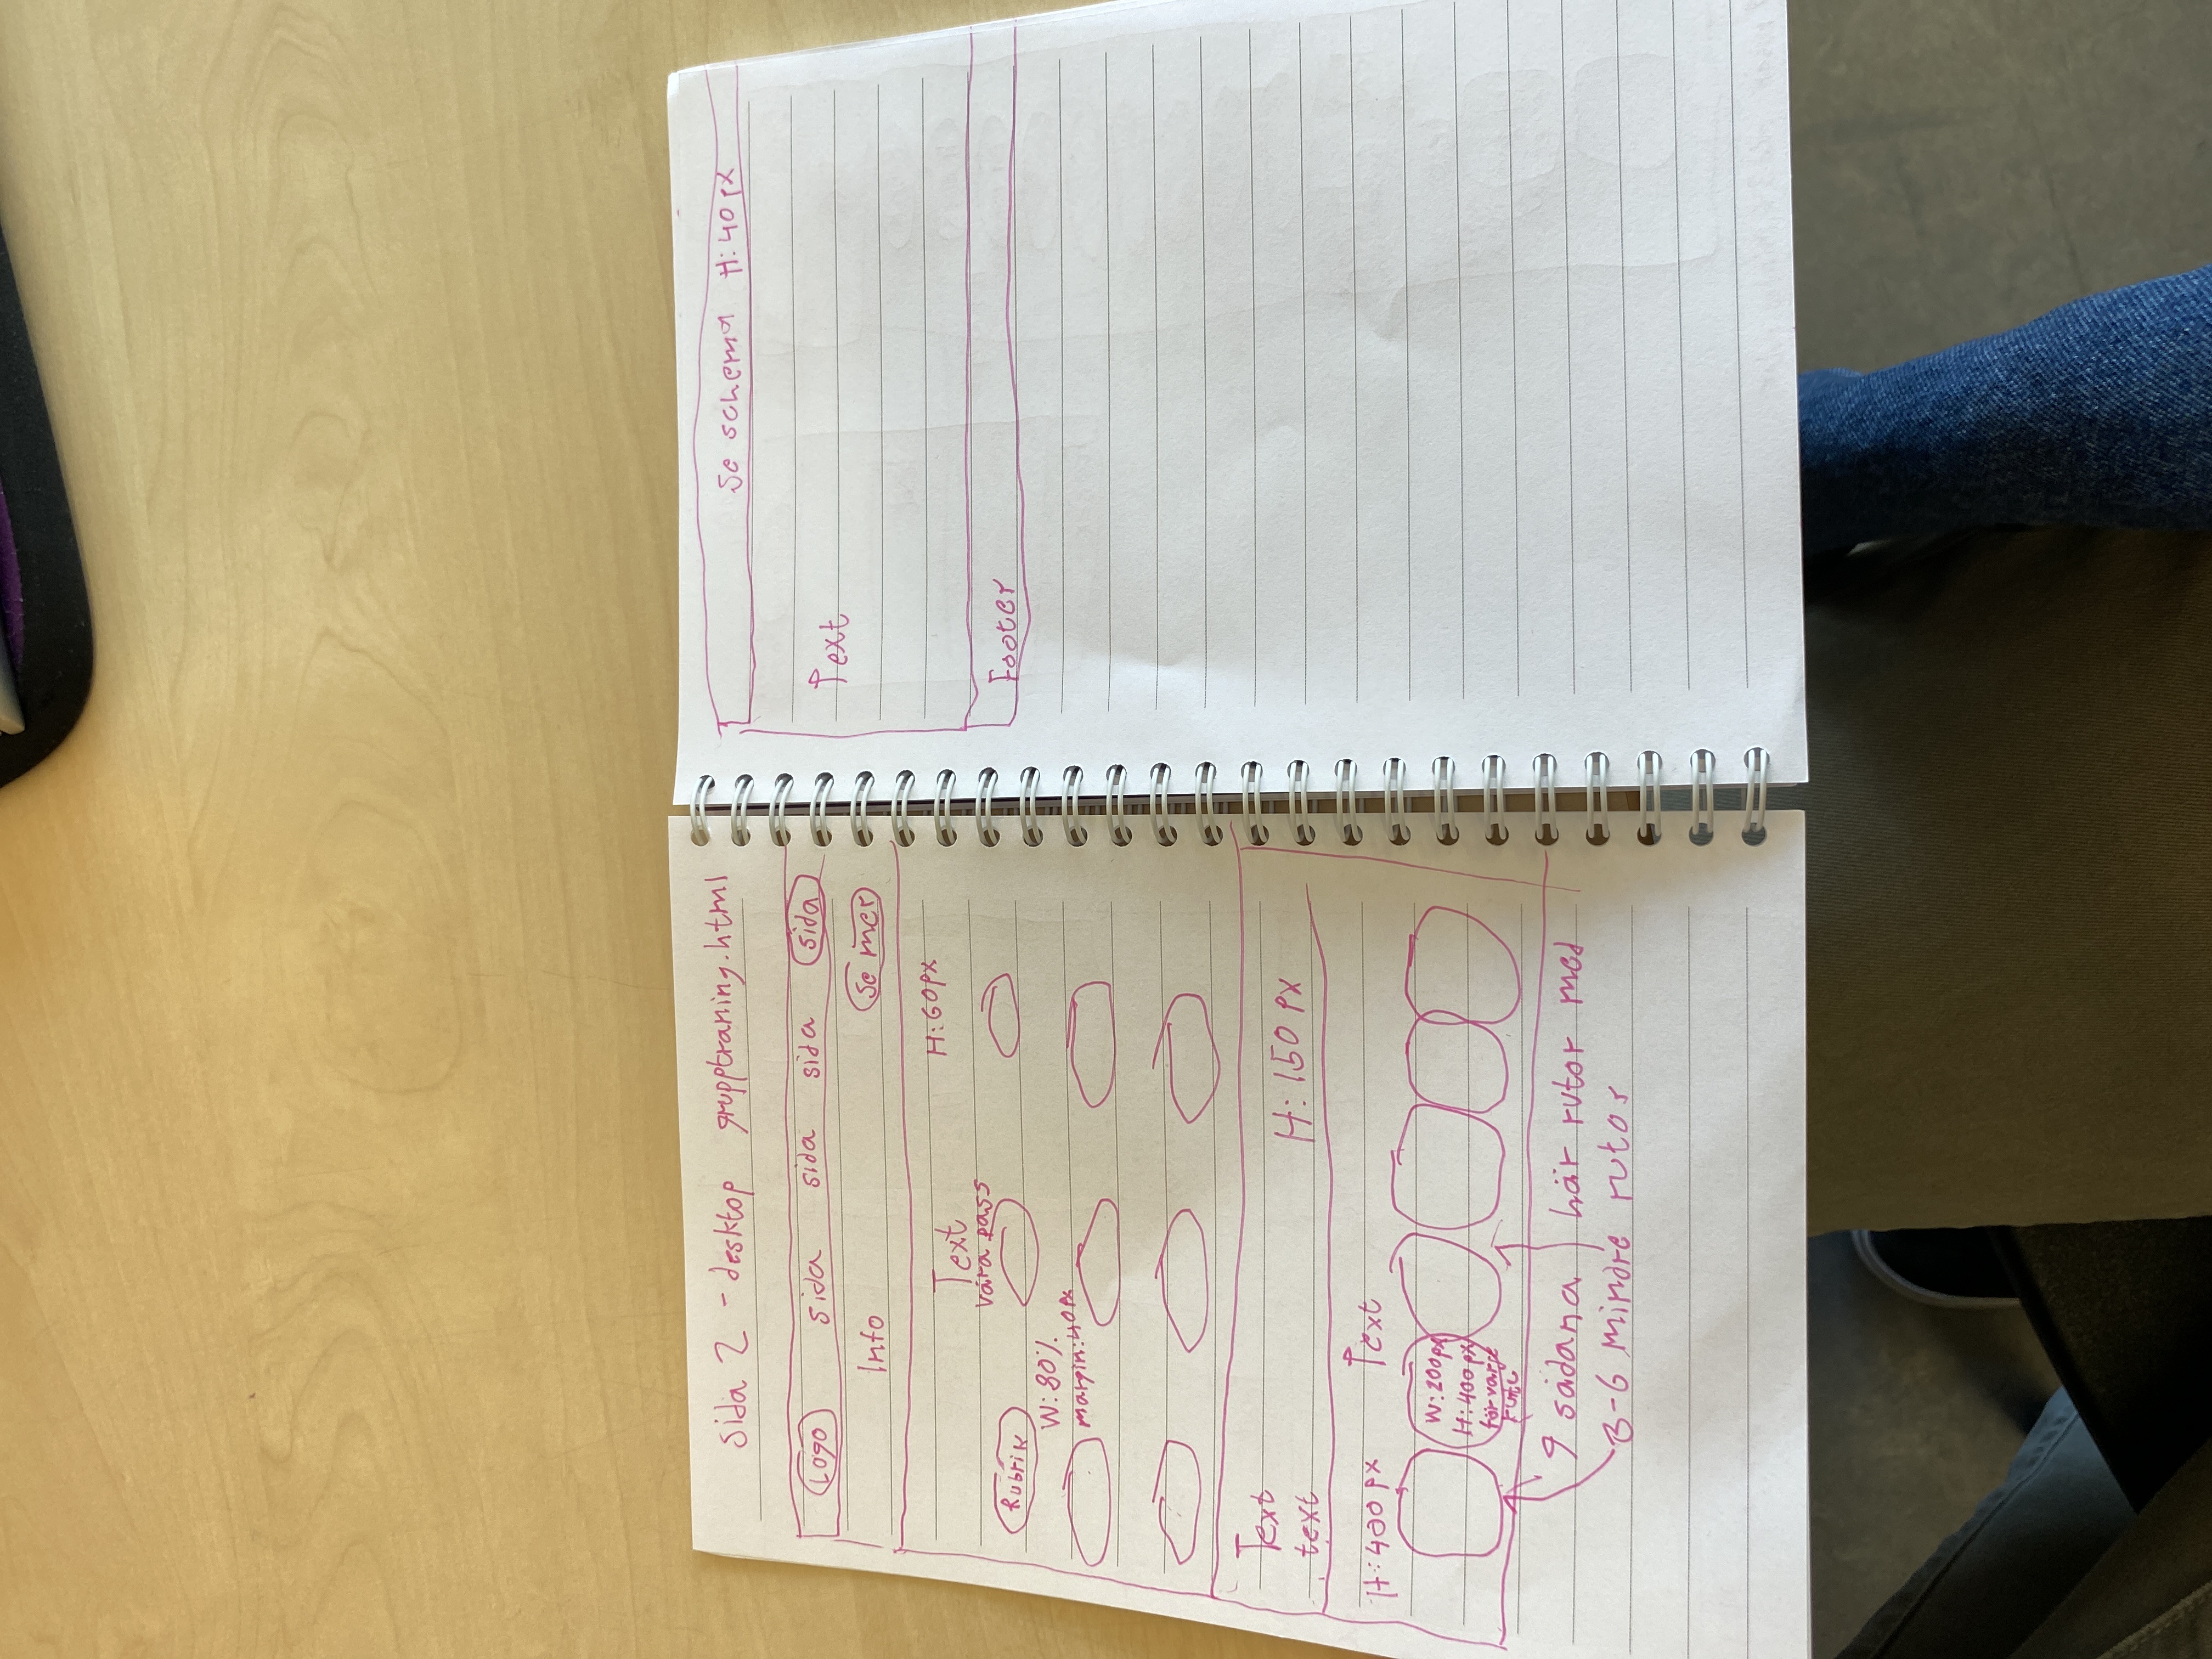 sida 2 - desktop grupptraning.html
Logo sida sida sida sida
Info Se mer
Text H: 60px
våra pass
Rubrik
W: 80%
margin: 40px
Text
text H: 150 px
H: 400 px Text
W: 200px
H: 400 px
för varje
ruta
9 sådana här rutor med
3-6 mindre rutor
Se schema H: 40 px
Text
Footer